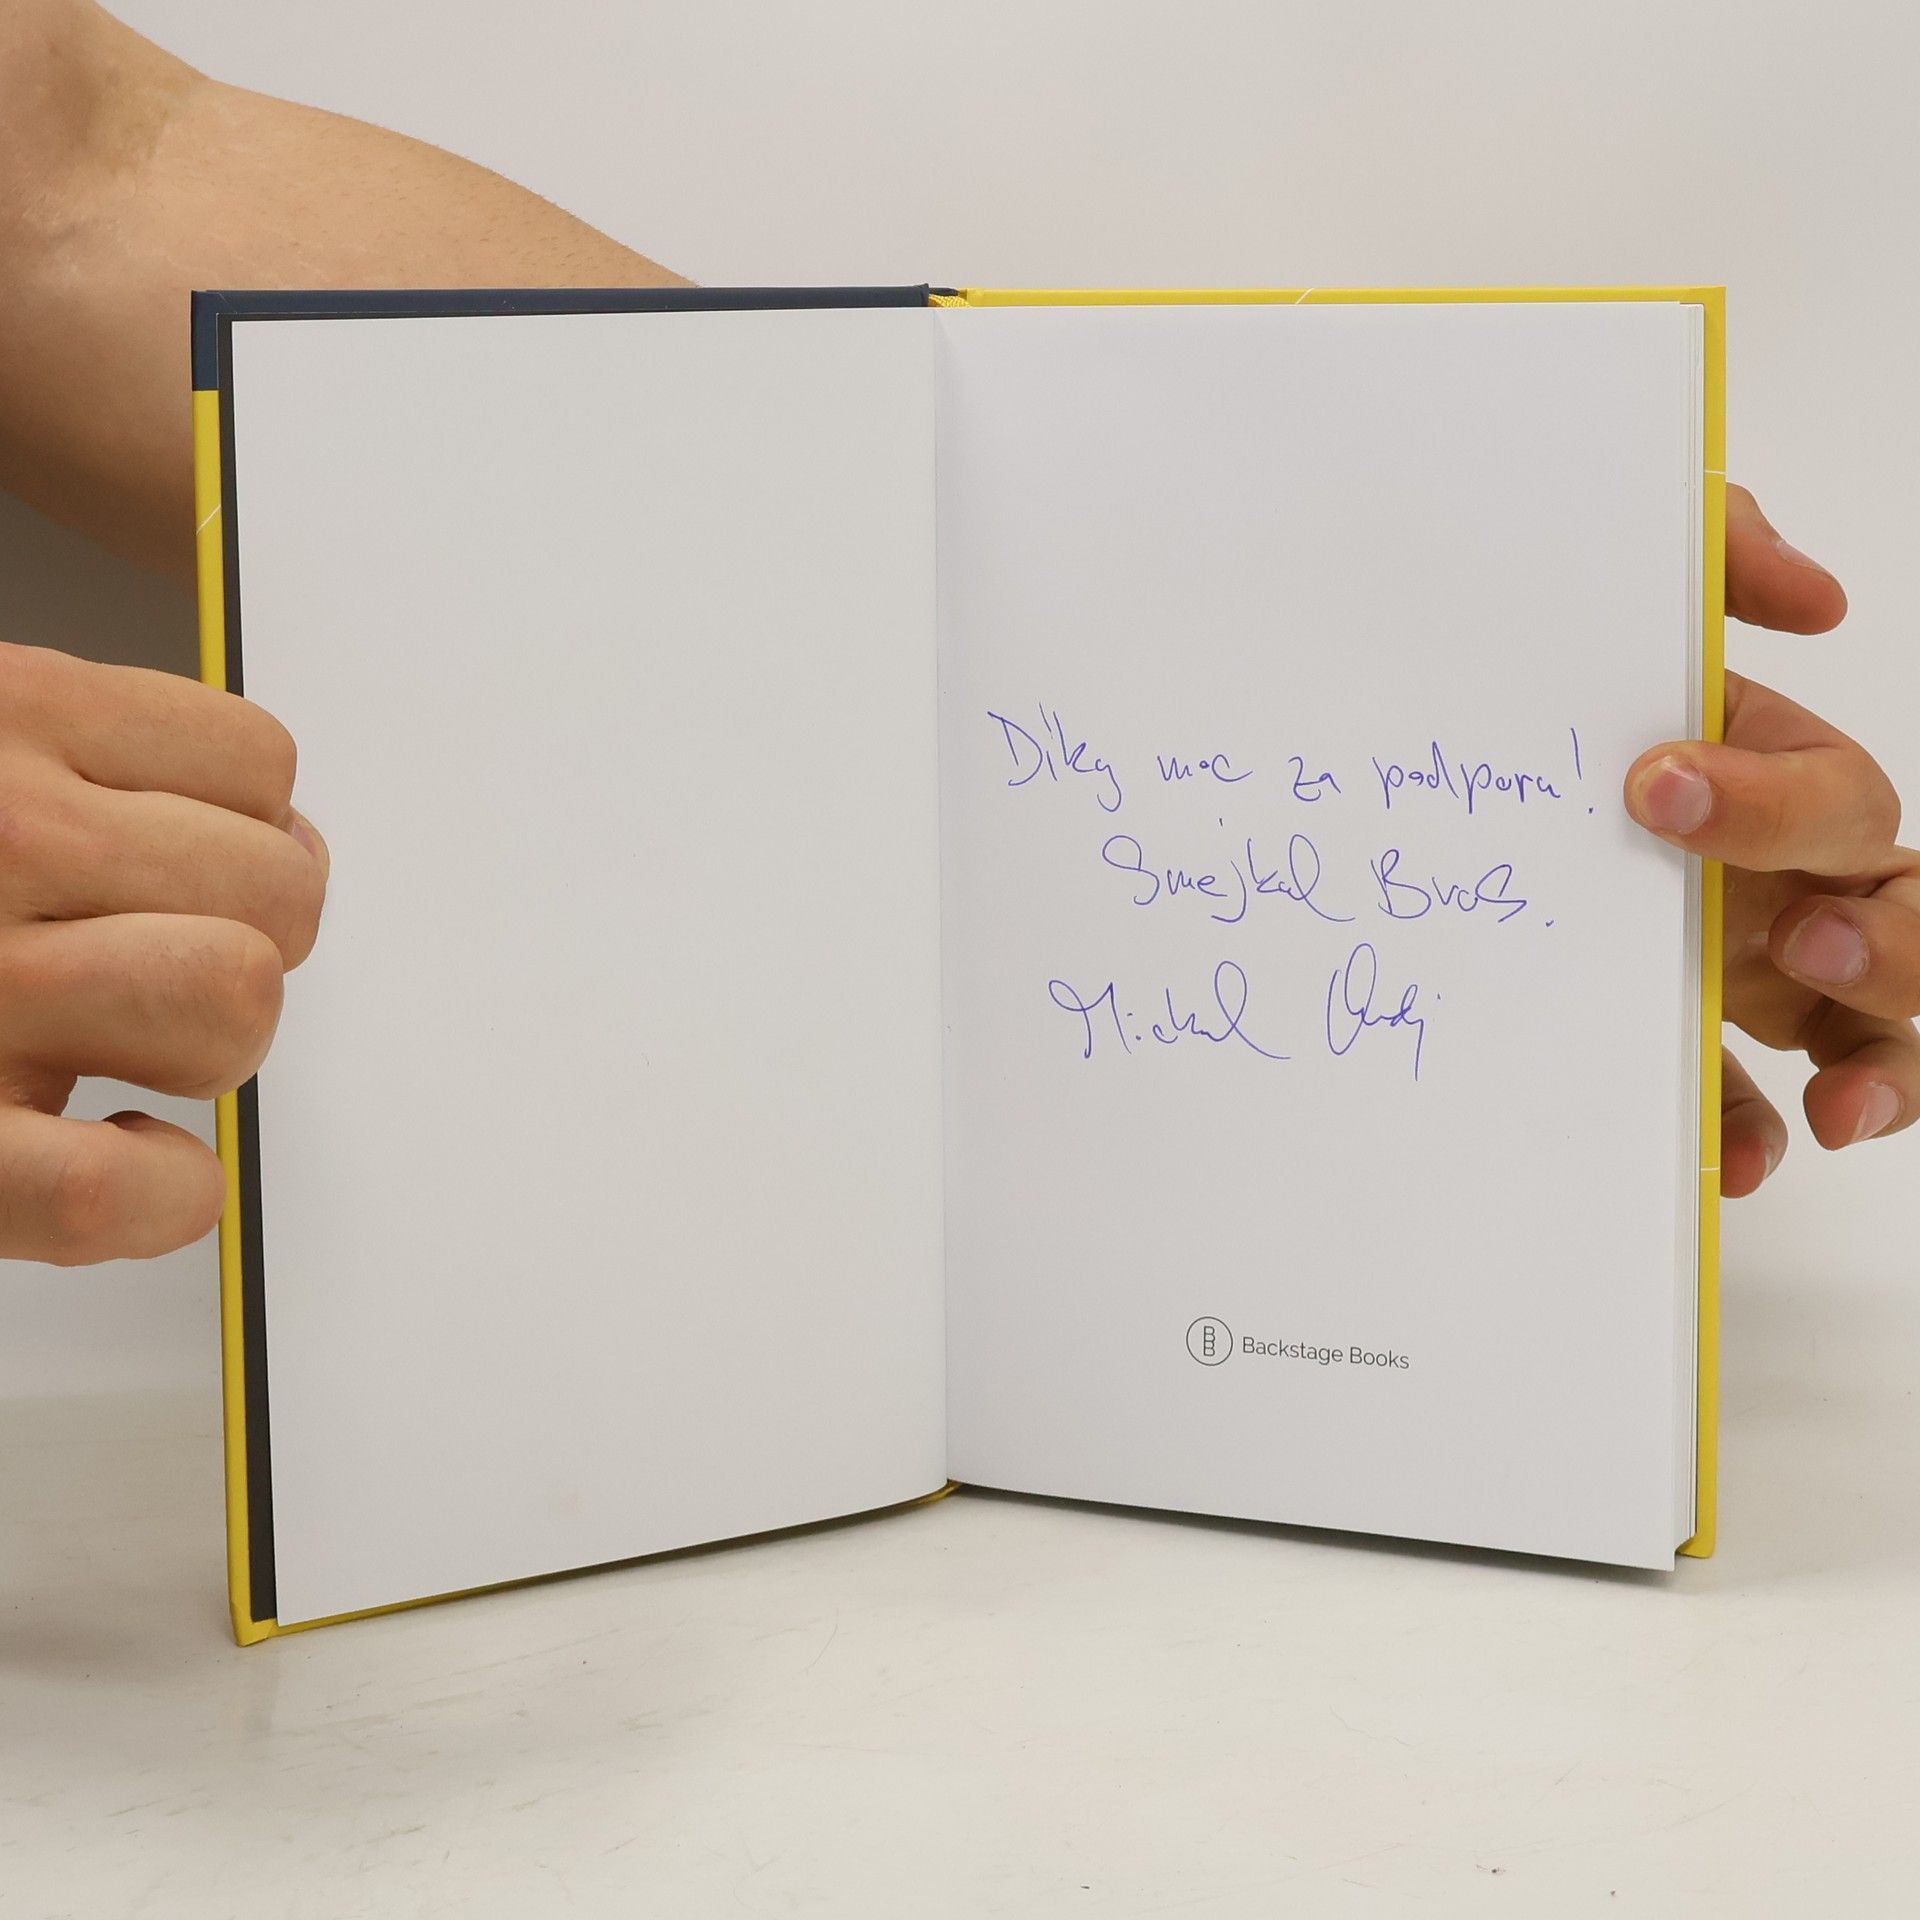 Díky moc za podporu!
Smejkal Bros.
Michal Ondj
BBB Backstage Books